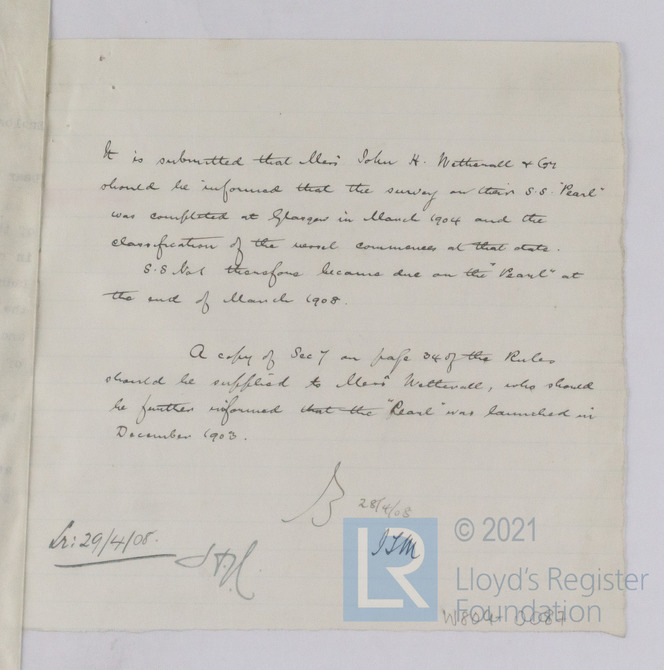 It is submitted that Mess John H. Wetherall & Coy
should be informed that the survey on their S.S. "Pearl"
was completed at Glasgow in March 1904 and the
classification of the vessel commences at that date.
S.S. No1 therefore became due on the "Pearl" at
the end of March 1908.
A copy of Sec 7 on page 34 of the Rules
should be supplied to Mess Wetherall, who should
be further informed that the "Pearl" was launched in
December 1903.
28/4/08
Lr: 29/4/08.
LR
© 2021
Lloyd's Register
Foundation
W804-0087